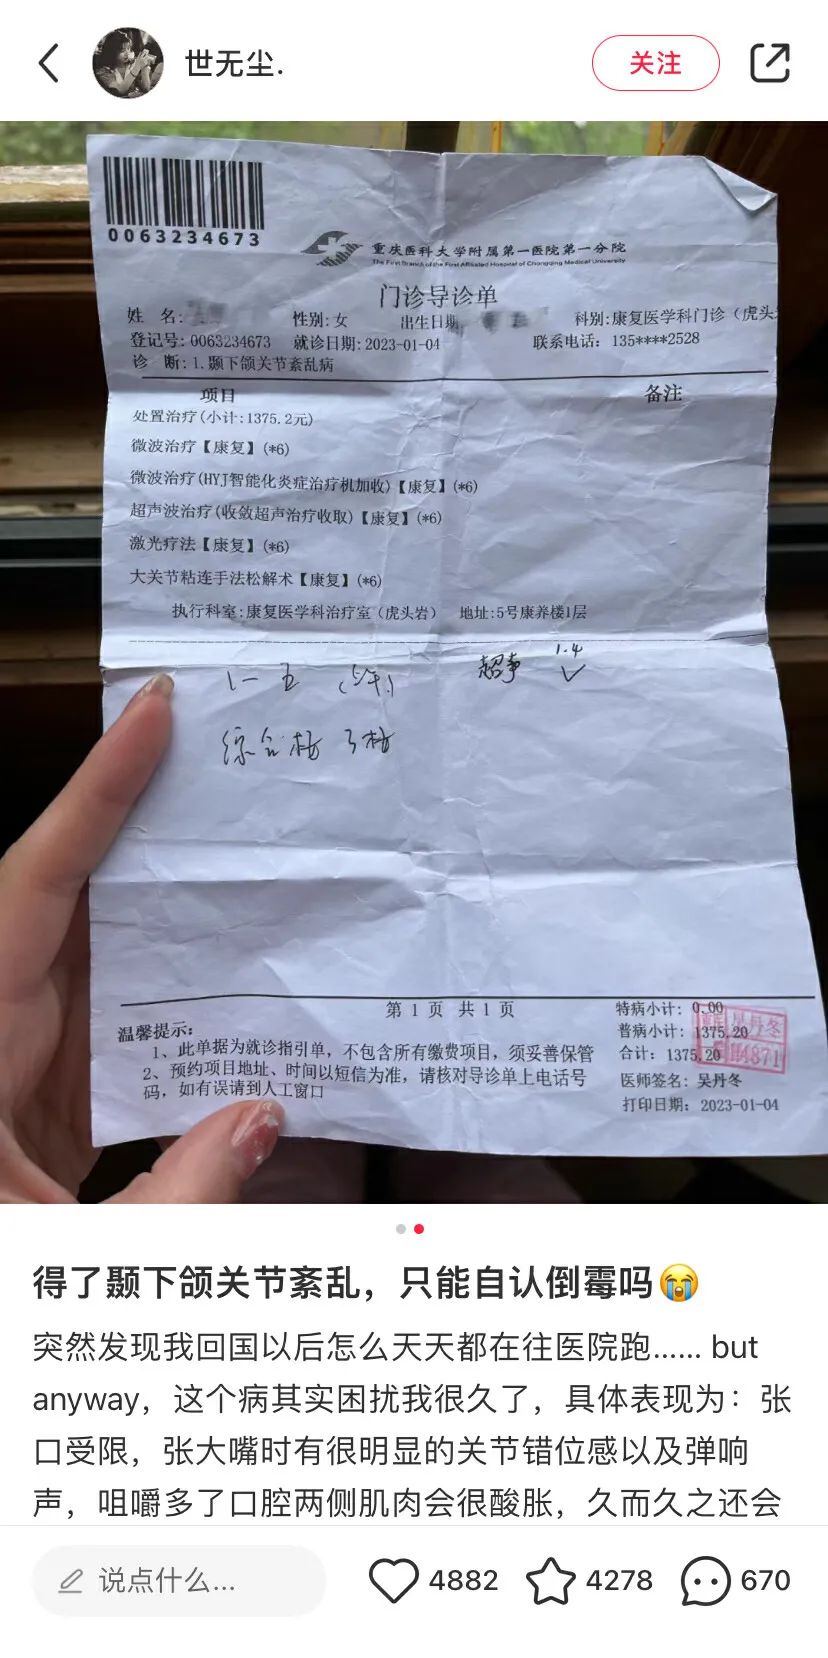 世无尘.
关注
0063234673
重庆医科大学附属第一医院第一分院
The First Branch of the First Affiliated Hospital of Chongqing Medical University
门诊导诊单
姓 名:
性别:女
出生日期
科别:康复医学科门诊（虎头
登记号:0063234673 就诊日期:2023-01-04
联系电话: 135****2528
诊 断:1.颞下颌关节紊乱病
项目
备注
处置治疗(小计:1375.2元)
微波治疗【康复】(*6)
微波治疗(HYJ智能化炎症治疗机加收)【康复】(*6)
超声波治疗(收敛超声治疗收取)【康复】(*6)
激光疗法【康复】(*6)
大关节粘连手法松解术【康复】(*6)
执行科室:康复医学科治疗室（虎头岩） 地址:5号康养楼1层
1.4
一五
超声
综合楼 3楼
第 1 页 共 1 页
温馨提示:
1、此单据为就诊指引单，不包含所有缴费项目，须妥善保管
2、预约项目地址、时间以短信为准，请核对导诊单上电话号
码，如有误请到人工窗口
特病小计: 0.00
普病小计: 1375.20
合计: 1375.20
医师签名: 吴丹冬
打印日期: 2023-01-04
吴丹冬
4871
得了颞下颌关节紊乱，只能自认倒霉吗😭
突然发现我回国以后怎么天天都在往医院跑…… but
anyway，这个病其实困扰我很久了，具体表现为：张
口受限，张大嘴时有很明显的关节错位感以及弹响
声，咀嚼多了口腔两侧肌肉会很酸胀，久而久之还会
说点什么...
4882
4278
670